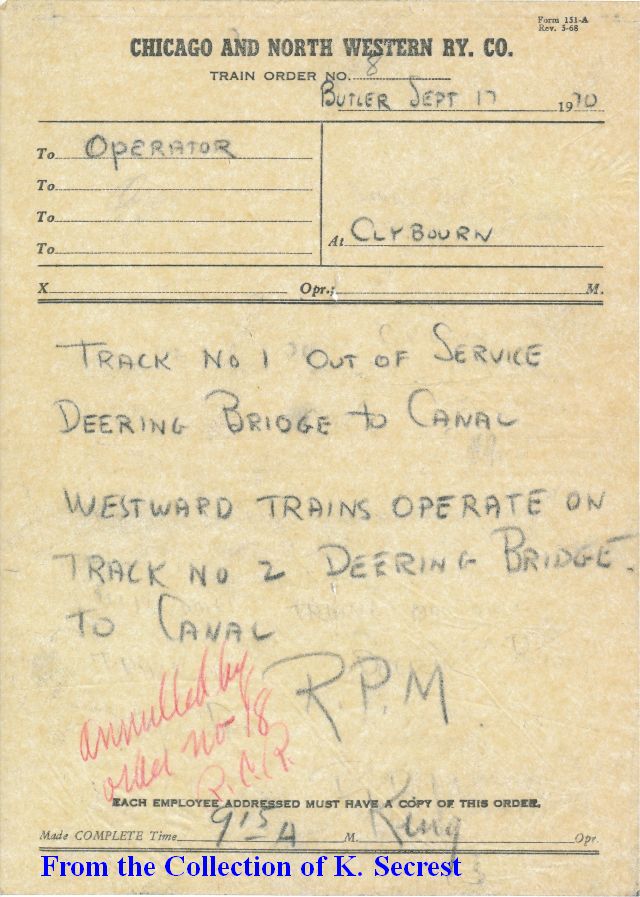 Form 151-A
Rev. 5-68
CHICAGO AND NORTH WESTERN RY. CO.
TRAIN ORDER NO. 8
BUTLER SEPT 17 1970
To OPERATOR
To
To
To
At CLYBOURN
X Opr.; M.
TRACK NO 1 OUT OF SERVICE
DEERING BRIDGE TO CANAL
WESTWARD TRAINS OPERATE ON
TRACK NO 2 DEERING BRIDGE
TO CANAL
R.P.M.
annulled by
order no 18
EACH EMPLOYEE ADDRESSED MUST HAVE A COPY OF THIS ORDER.
Made COMPLETE Time 915 A M. King Opr.
From the Collection of K. Secrest